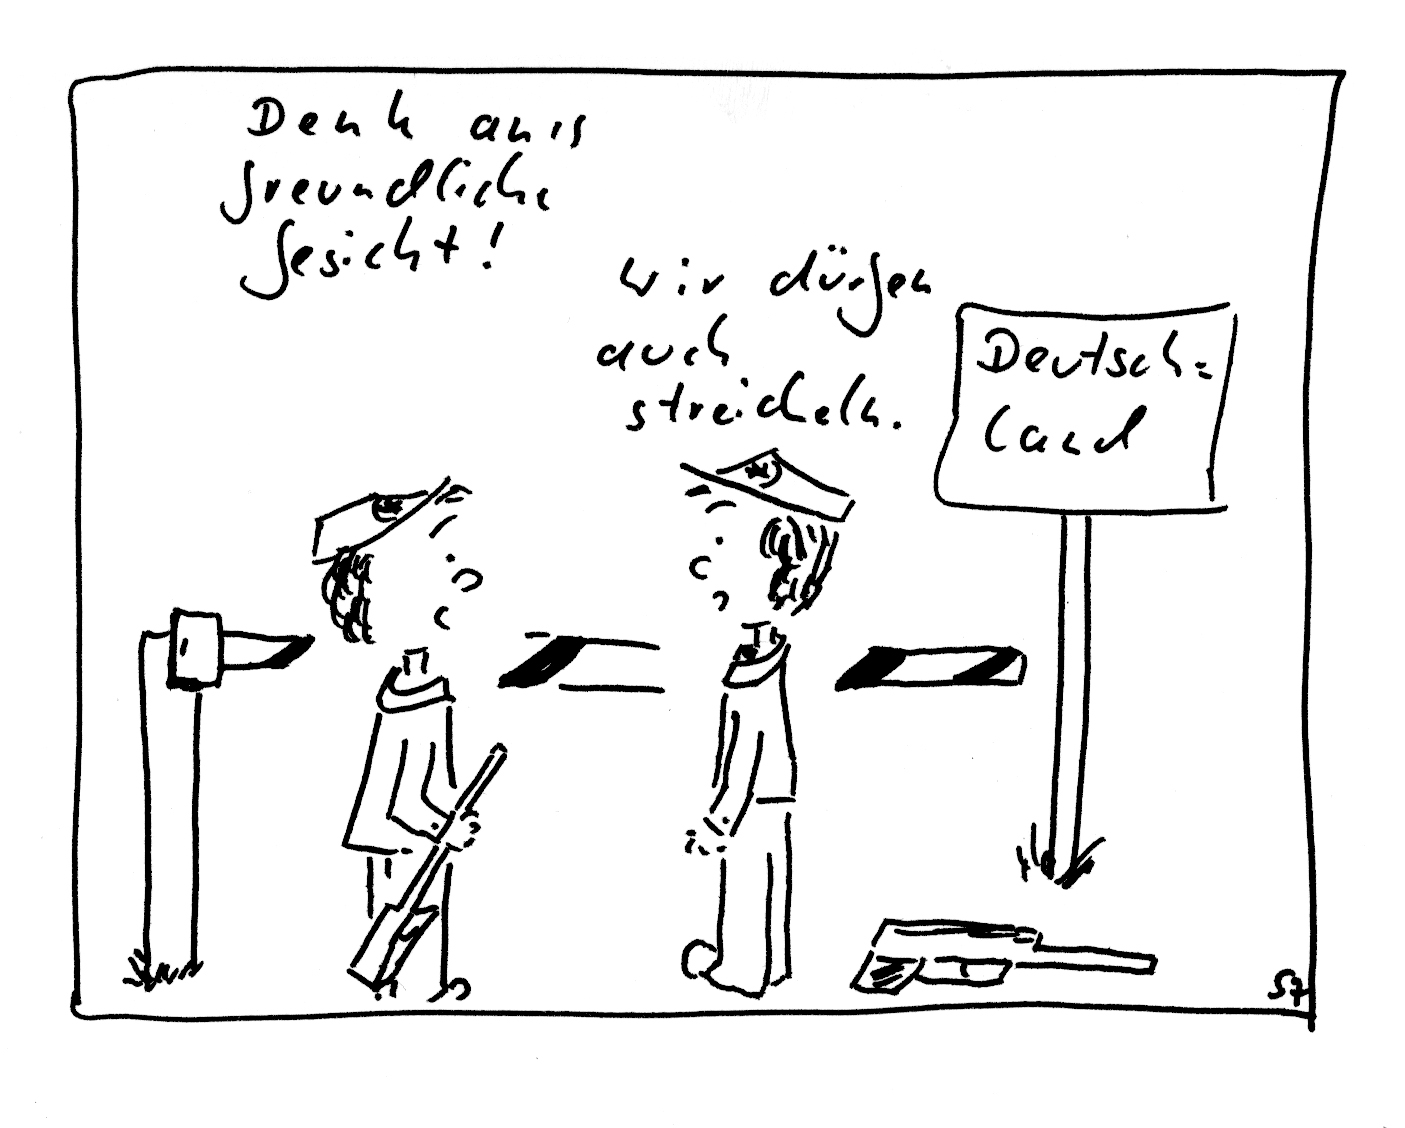 Denk anis
freundliche
Gesicht!
Wir dürfen
auch
streicheln.
Deutsch=
land